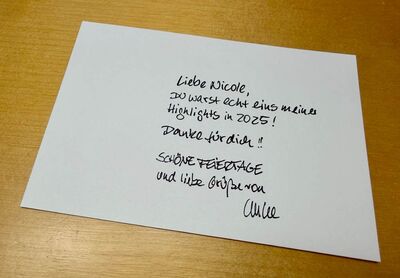 Liebe Nicole,
DU warst echt eins meiner
Highlights in 2025!
Danke für dich!!
SCHÖNE FEIERTAGE
und liebe Grüße von